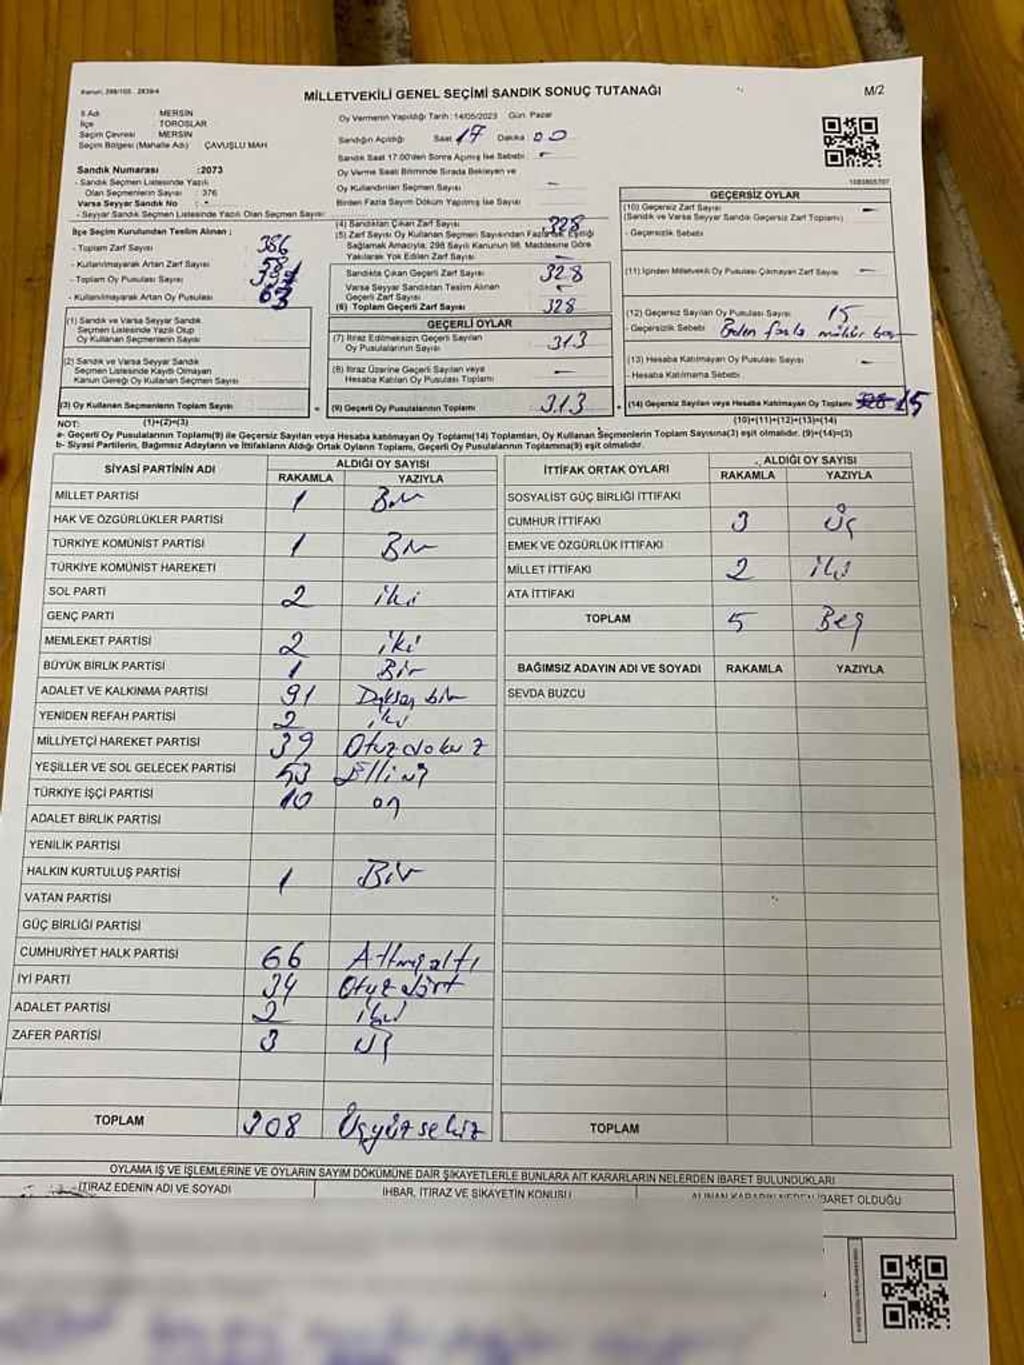 Kanun; 298/105 , 2839/4
MİLLETVEKİLİ GENEL SEÇİMİ SANDIK SONUÇ TUTANAĞI
M/2
İl Adı : MERSİN
İlçe : TOROSLAR
Seçim Çevresi : MERSİN
Seçim Bölgesi (Mahalle Adı) : ÇAVUŞLU MAH
Sandık Numarası :2073
- Sandık Seçmen Listesinde Yazılı
Olan Seçmenlerin Sayısı : 376
Varsa Seyyar Sandık No : -
- Seyyar Sandık Seçmen Listesinde Yazılı Olan Seçmen Sayısı
İlçe Seçim Kurulundan Teslim Alınan ;
- Toplam Zarf Sayısı 386
- Kullanılmayarak Artan Zarf Sayısı 58
- Toplam Oy Pusulası Sayısı
- Kullanılmayarak Artan Oy Pusulası 63
(1) Sandık ve Varsa Seyyar Sandık
Seçmen Listesinde Yazılı Olup
Oy Kullanan Seçmen Sayısı
(2) Sandık ve Varsa Seyyar Sandık
Seçmen Listesinde Kaydı Olmayan
Kanun Gereği Oy Kullanan Seçmen Sayısı
(3) Oy Kullanan Seçmenlerin Toplam Sayısı
Oy Vermenin Yapıldığı Tarih : 14/05/2023 Gün: Pazar
Sandığın Açıldığı Saat 17 Dakika : 00
Sandık Saat 17.00'den Sonra Açılmış İse Sebebi : -
Oy Verme Saati Bitiminde Sırada Bekleyen ve
Oy Kullandırılan Seçmen Sayısı -
Birden Fazla Sayım Döküm Yapılmış İse Sayısı
(4) Sandıktan Çıkan Zarf Sayısı 328
(5) Zarf Sayısı Oy Kullanan Seçmen Sayısından Fazla ise, Eşitliği
Sağlamak Amacıyla, 298 Sayılı Kanunun 98. Maddesine Göre
Yakılarak Yok Edilen Zarf Sayısı -
Sandıkta Çıkan Geçerli Zarf Sayısı 328
Varsa Seyyar Sandıktan Teslim Alınan
Geçerli Zarf Sayısı -
(6) Toplam Geçerli Zarf Sayısı 328
GEÇERLİ OYLAR
(7) İtiraz Edilmeksizin Geçerli Sayılan
Oy Pusulalarının Sayısı 313
(8) İtiraz Üzerine Geçerli Sayılan veya
Hesaba Katılan Oy Pusulaları Toplamı -
= (9) Geçerli Oy Pusulalarının Toplamı 313
GEÇERSİZ OYLAR
(10) Geçersiz Zarf Sayısı -
(Sandık ve Varsa Seyyar Sandık Geçersiz Zarf Toplamı)
- Geçersizlik Sebebi
(11) İçinden Milletvekili Oy Pusulası Çıkmayan Zarf Sayısı -
(12) Geçersiz Sayılan Oy Pusulası Sayısı 15
- Geçersizlik Sebebi Birden fazla mühür
(13) Hesaba Katılmayan Oy Pusulası Sayısı -
- Hesaba Katılmama Sebebi
+ (14) Geçersiz Sayılan veya Hesaba Katılmayan Oy Toplamı 328 15
NOT: (1)+(2)=(3) (10)+(11)+(12)+(13)=(14)
a- Geçerli Oy Pusulalarının Toplamı(9) ile Geçersiz Sayılan veya Hesaba katılmayan Oy Toplamı(14) Toplamları, Oy Kullanan Seçmenlerin Toplam Sayısına(3) eşit olmalıdır. (9)+(14)=(3)
b- Siyasi Partilerin, Bağımsız Adayların ve İttifakların Aldığı Ortak Oyların Toplamı, Geçerli Oy Pusulalarının Toplamına(9) eşit olmalıdır.
SİYASİ PARTİNİN ADI ALDIĞI OY SAYISI
RAKAMLA YAZIYLA
MİLLET PARTİSİ 1 Bir
HAK VE ÖZGÜRLÜKLER PARTİSİ
TÜRKİYE KOMÜNİST PARTİSİ 1 Bir
TÜRKİYE KOMÜNİST HAREKETİ
SOL PARTİ 2 iki
GENÇ PARTİ
MEMLEKET PARTİSİ 2 iki
BÜYÜK BİRLİK PARTİSİ 1 Bir
ADALET VE KALKINMA PARTİSİ 91 Doksan bir
YENİDEN REFAH PARTİSİ 2 iki
MİLLİYETÇİ HAREKET PARTİSİ 39 Otuz dokuz
YEŞİLLER VE SOL GELECEK PARTİSİ 53 Elli üç
TÜRKİYE İŞÇİ PARTİSİ 10 on
ADALET BİRLİK PARTİSİ
YENİLİK PARTİSİ
HALKIN KURTULUŞ PARTİSİ 1 Bir
VATAN PARTİSİ
GÜÇ BİRLİĞİ PARTİSİ
CUMHURİYET HALK PARTİSİ 66 Altmışaltı
İYİ PARTİ 34 Otuz dört
ADALET PARTİSİ 2 iki
ZAFER PARTİSİ 3 üç
TOPLAM 308 Üçyüz sekiz
İTTİFAK ORTAK OYLARI ALDIĞI OY SAYISI
RAKAMLA YAZIYLA
SOSYALİST GÜÇ BİRLİĞİ İTTİFAKI
CUMHUR İTTİFAKI 3 üç
EMEK VE ÖZGÜRLÜK İTTİFAKI
MİLLET İTTİFAKI 2 iki
ATA İTTİFAKI
TOPLAM 5 Beş
BAĞIMSIZ ADAYIN ADI VE SOYADI RAKAMLA YAZIYLA
SEVDA BUZCU
TOPLAM
OYLAMA İŞ VE İŞLEMLERİNE VE OYLARIN SAYIM DÖKÜMÜNE DAİR ŞİKAYETLERLE BUNLARA AİT KARARLARIN NELERDEN İBARET BULUNDUKLARI
İTİRAZ EDENİN ADI VE SOYADI İHBAR, İTİRAZ VE ŞİKAYETİN KONUSU ALINAN KARARIN NEDEN İBARET OLDUĞU